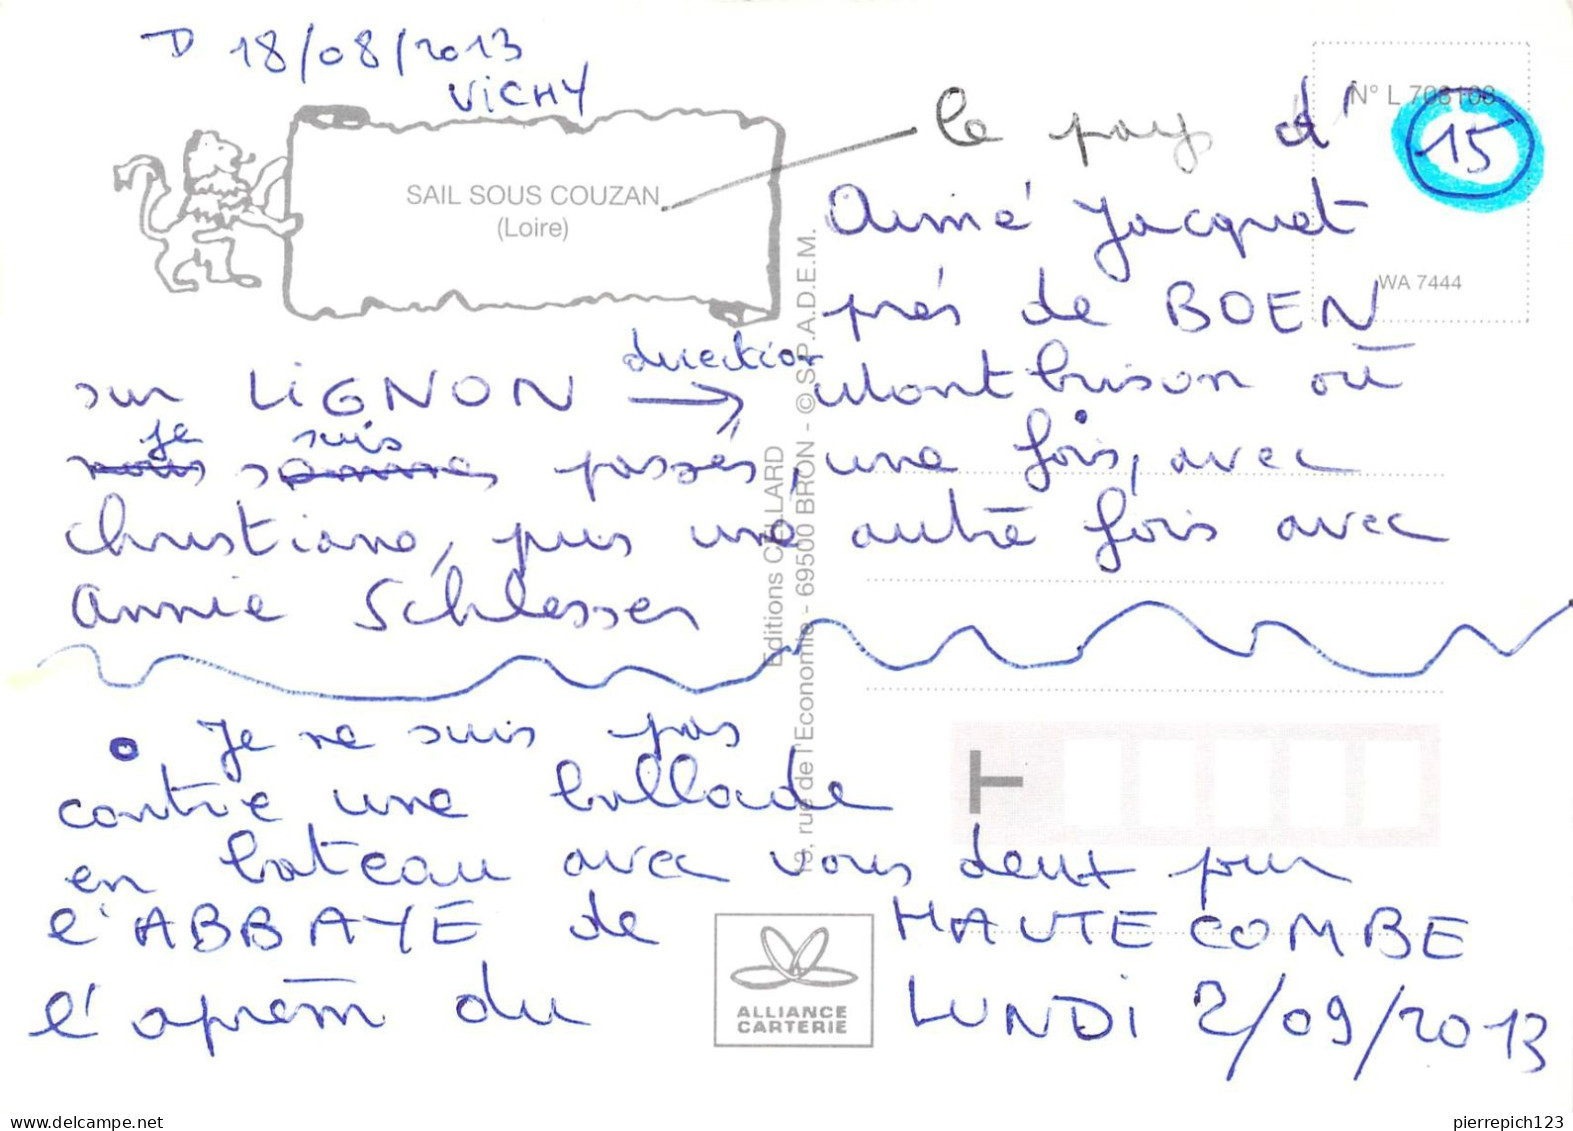 D 18/08/2013
VICHY
SAIL SOUS COUZAN
(Loire)
N° L 708108
15
WA 7444
le pays d'
Aimé Jacquet
près de BOEN
sur LIGNON direction → Montbrison où
je suis
nous sommes passés, une fois, avec
Christiane, puis une autre fois avec
Annie Schlesser
• Je ne suis pas
contre une ballade
en bateau avec vous deux pour
l'ABBAYE de HAUTECOMBE
l'aprèm du LUNDI 2/09/2013
Editions CELLARD
19, rue de l'Economie - 69500 BRON - © S.P.A.D.E.M.
T
ALLIANCE
CARTERIE
delcampe.net
pierrepich123